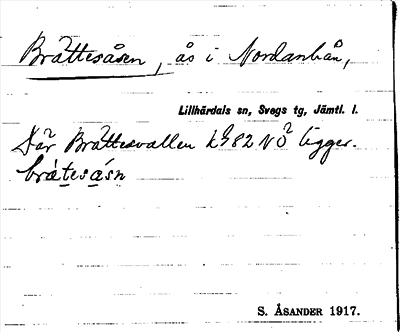 Bråttesåsen, ås i Nordanhån,
Lillhärdals sn, Svegs tg, Jämtl. l.
Där Bråttesvallen 82 NÖ ligger.
bråtesåsn
S. ÅSANDER 1917.